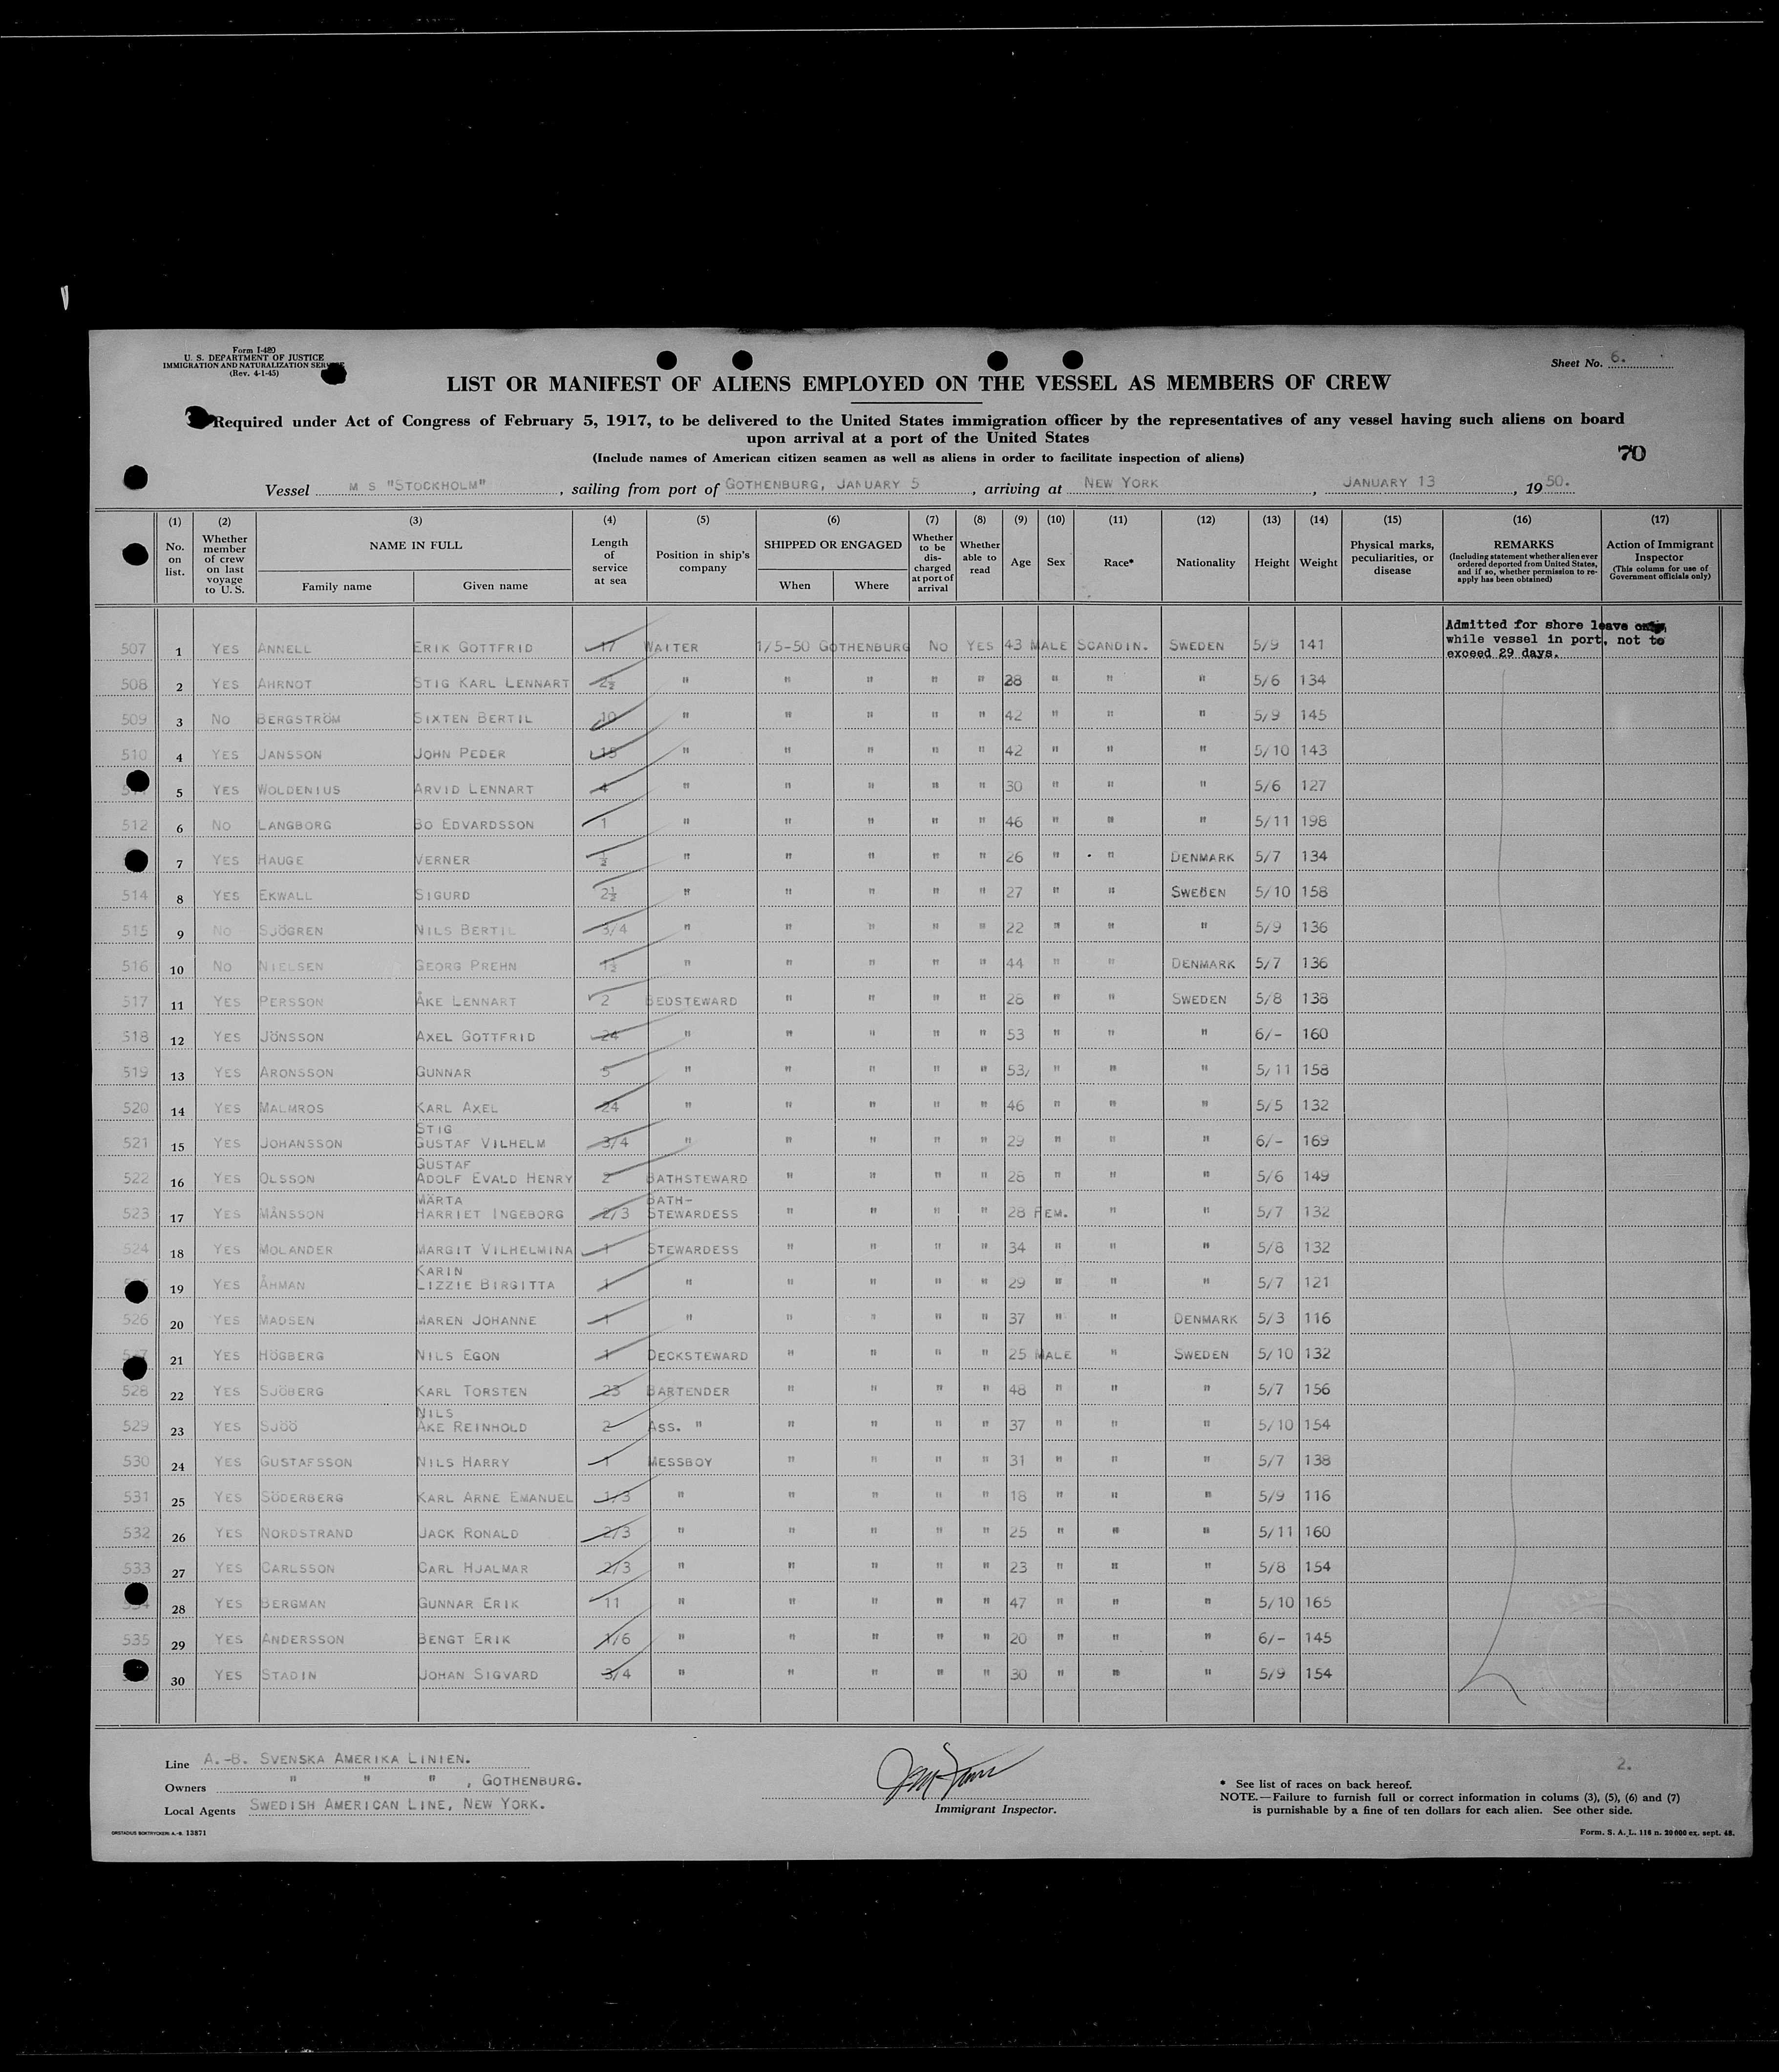 Form I-489
U. S. DEPARTMENT OF JUSTICE
IMMIGRATION AND NATURALIZATION
(Rev. 4-1-45)
Sheet No. 6.
LIST OR MANIFEST OF ALIENS EMPLOYED ON THE VESSEL AS MEMBERS OF CREW
Required under Act of Congress of February 5, 1917, to be delivered to the United States immigration officer by the representatives of any vessel having such aliens on board
upon arrival at a port of the United States
(Include names of American citizen seamen as well as aliens in order to facilitate inspection of aliens)
70
Vessel M S "STOCKHOLM", sailing from port of GOTHENBURG, JANUARY 5, arriving at NEW YORK, JANUARY 13, 1950.
(1) (2) (3) (4) (5) (6) (7) (8) (9) (10) (11) (12) (13) (14) (15) (16) (17)
No. on list. Whether member of crew on last voyage to U. S. NAME IN FULL Family name Given name Length of service at sea Position in ship's company SHIPPED OR ENGAGED When Where Whether to be discharged at port of arrival Whether able to read Age Sex Race* Nationality Height Weight Physical marks, peculiarities, or disease REMARKS (Including statement whether alien ever ordered deported from United States, and if so, whether permission to re-apply has been obtained) Action of Immigrant Inspector (This column for use of Government officials only)
Admitted for shore leave only
while vessel in port, not to
exceed 29 days.
507 1 YES ANNELL ERIK GOTTFRID 17 WAITER 1/5-50 GOTHENBURG NO YES 43 MALE SCANDIN. SWEDEN 5/9 141
508 2 YES AHRNOT STIG KARL LENNART 2½ " " " " " 28 " " " 5/6 134
509 3 NO BERGSTRÖM SIXTEN BERTIL 10 " " " " " 42 " " " 5/9 145
510 4 YES JANSSON JOHN PEDER 15 " " " " " 42 " " " 5/10 143
5 YES WOLDENIUS ARVID LENNART 4 " " " " " 30 " " " 5/6 127
512 6 NO LANGBORG BO EDVARDSSON 1 " " " " " 46 " " " 5/11 198
7 YES HAUGE VERNER ½ " " " " " 26 " " DENMARK 5/7 134
514 8 YES EKWALL SIGURD 2½ " " " " " 27 " " SWEDEN 5/10 158
515 9 NO SJÖGREN NILS BERTIL 3/4 " " " " " 22 " " " 5/9 136
516 10 NO NIELSEN GEORG PREHN 1½ " " " " " 44 " " DENMARK 5/7 136
517 11 YES PERSSON ÅKE LENNART 2 BEDSTEWARD " " " " 28 " " SWEDEN 5/8 138
518 12 YES JÖNSSON AXEL GOTTFRID 24 " " " " " 53 " " " 6/- 160
519 13 YES ARONSSON GUNNAR 5 " " " " " 53 " " " 5/11 158
520 14 YES MALMROS KARL AXEL 24 " " " " " 46 " " " 5/5 132
521 15 YES JOHANSSON STIG GUSTAF VILHELM 3/4 " " " " " 29 " " " 6/- 169
522 16 YES OLSSON GUSTAF ADOLF EVALD HENRY 2 BATHSTEWARD " " " " 28 " " " 5/6 149
523 17 YES MÅNSSON MÄRTA HARRIET INGEBORG 2/3 BATH-STEWARDESS " " " " 28 FEM. " " 5/7 132
524 18 YES MOLANDER MARGIT VILHELMINA 1 STEWARDESS " " " " 34 " " " 5/8 132
19 YES ÅHMAN KARIN LIZZIE BIRGITTA 1 " " " " " 29 " " " 5/7 121
526 20 YES MADSEN MAREN JOHANNE 1 " " " " " 37 " " DENMARK 5/3 116
21 YES HÖGBERG NILS EGON 1 DECKSTEWARD " " " " 25 MALE " SWEDEN 5/10 132
528 22 YES SJÖBERG KARL TORSTEN 23 BARTENDER " " " " 48 " " " 5/7 156
529 23 YES SJÖÖ NILS ÅKE REINHOLD 2 ASS. " " " " " 37 " " " 5/10 154
530 24 YES GUSTAFSSON NILS HARRY 1 MESSBOY " " " " 31 " " " 5/7 138
531 25 YES SÖDERBERG KARL ARNE EMANUEL 1/3 " " " " " 18 " " " 5/9 116
532 26 YES NORDSTRAND JACK RONALD 2/3 " " " " " 25 " " " 5/11 160
533 27 YES CARLSSON CARL HJALMAR 2/3 " " " " " 23 " " " 5/8 154
28 YES BERGMAN GUNNAR ERIK 11 " " " " " 47 " " " 5/10 165
535 29 YES ANDERSSON BENGT ERIK 1/6 " " " " " 20 " " " 6/- 145
30 YES STADIN JOHAN SIGVARD 3/4 " " " " " 30 " " " 5/9 154
Line A.-B. SVENSKA AMERIKA LINIEN.
Owners " " " , GOTHENBURG.
Local Agents SWEDISH AMERICAN LINE, NEW YORK.
Immigrant Inspector.
2.
* See list of races on back hereof.
NOTE.—Failure to furnish full or correct information in colums (3), (5), (6) and (7)
is punishable by a fine of ten dollars for each alien. See other side.
ORSTADIUS BOKTRYCKERI A.-B. 13871
Form. S. A. L. 116 n. 20 000 ex. sept. 48.